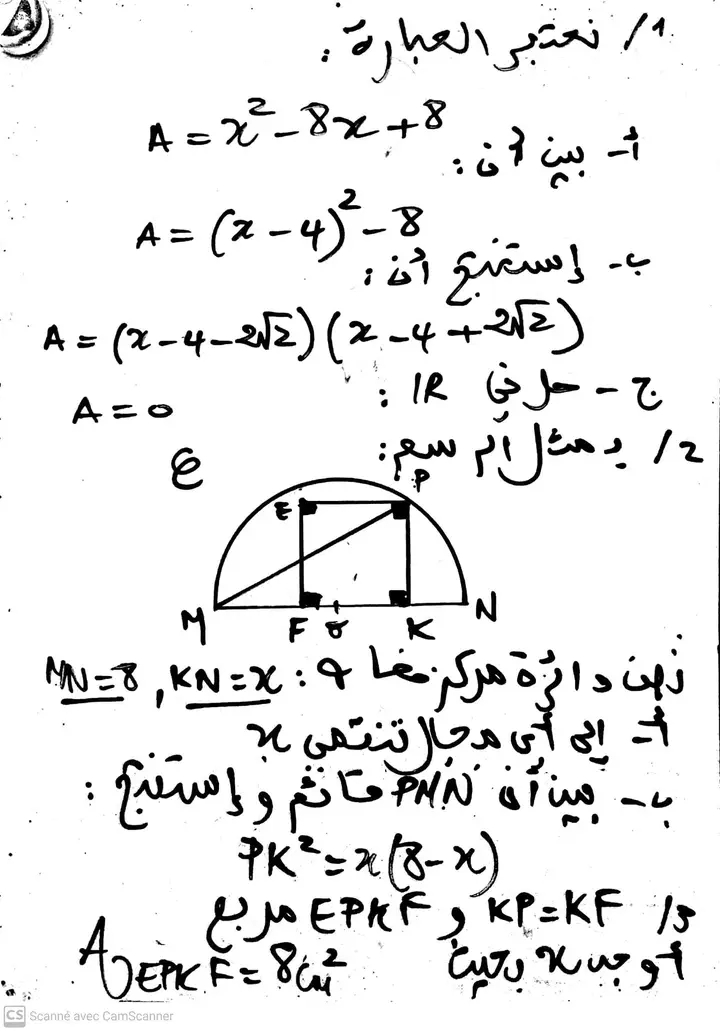 1/ نعتبر العبارة :
A = x² - 8x + 8
أ- بين أن :
A = (x - 4)² - 8
ب- إستنتج أن :
A = (x - 4 - 2√2)(x - 4 + 2√2)
ج- حل في IR :
A = 0
2/ يمثل الرسم :
P
E
M F O K N
نصف دائرة مركزها O : KN = x , MN = 8
أ- إلى أي مجال تنتمي x
ب- بين أن PMN قائم و إستنتج :
PK² = x(8 - x)
3/ KP = KF و EPKF مربع
أوجد x بحيث
A EPKF = 8cm²
CS Scanné avec CamScanner